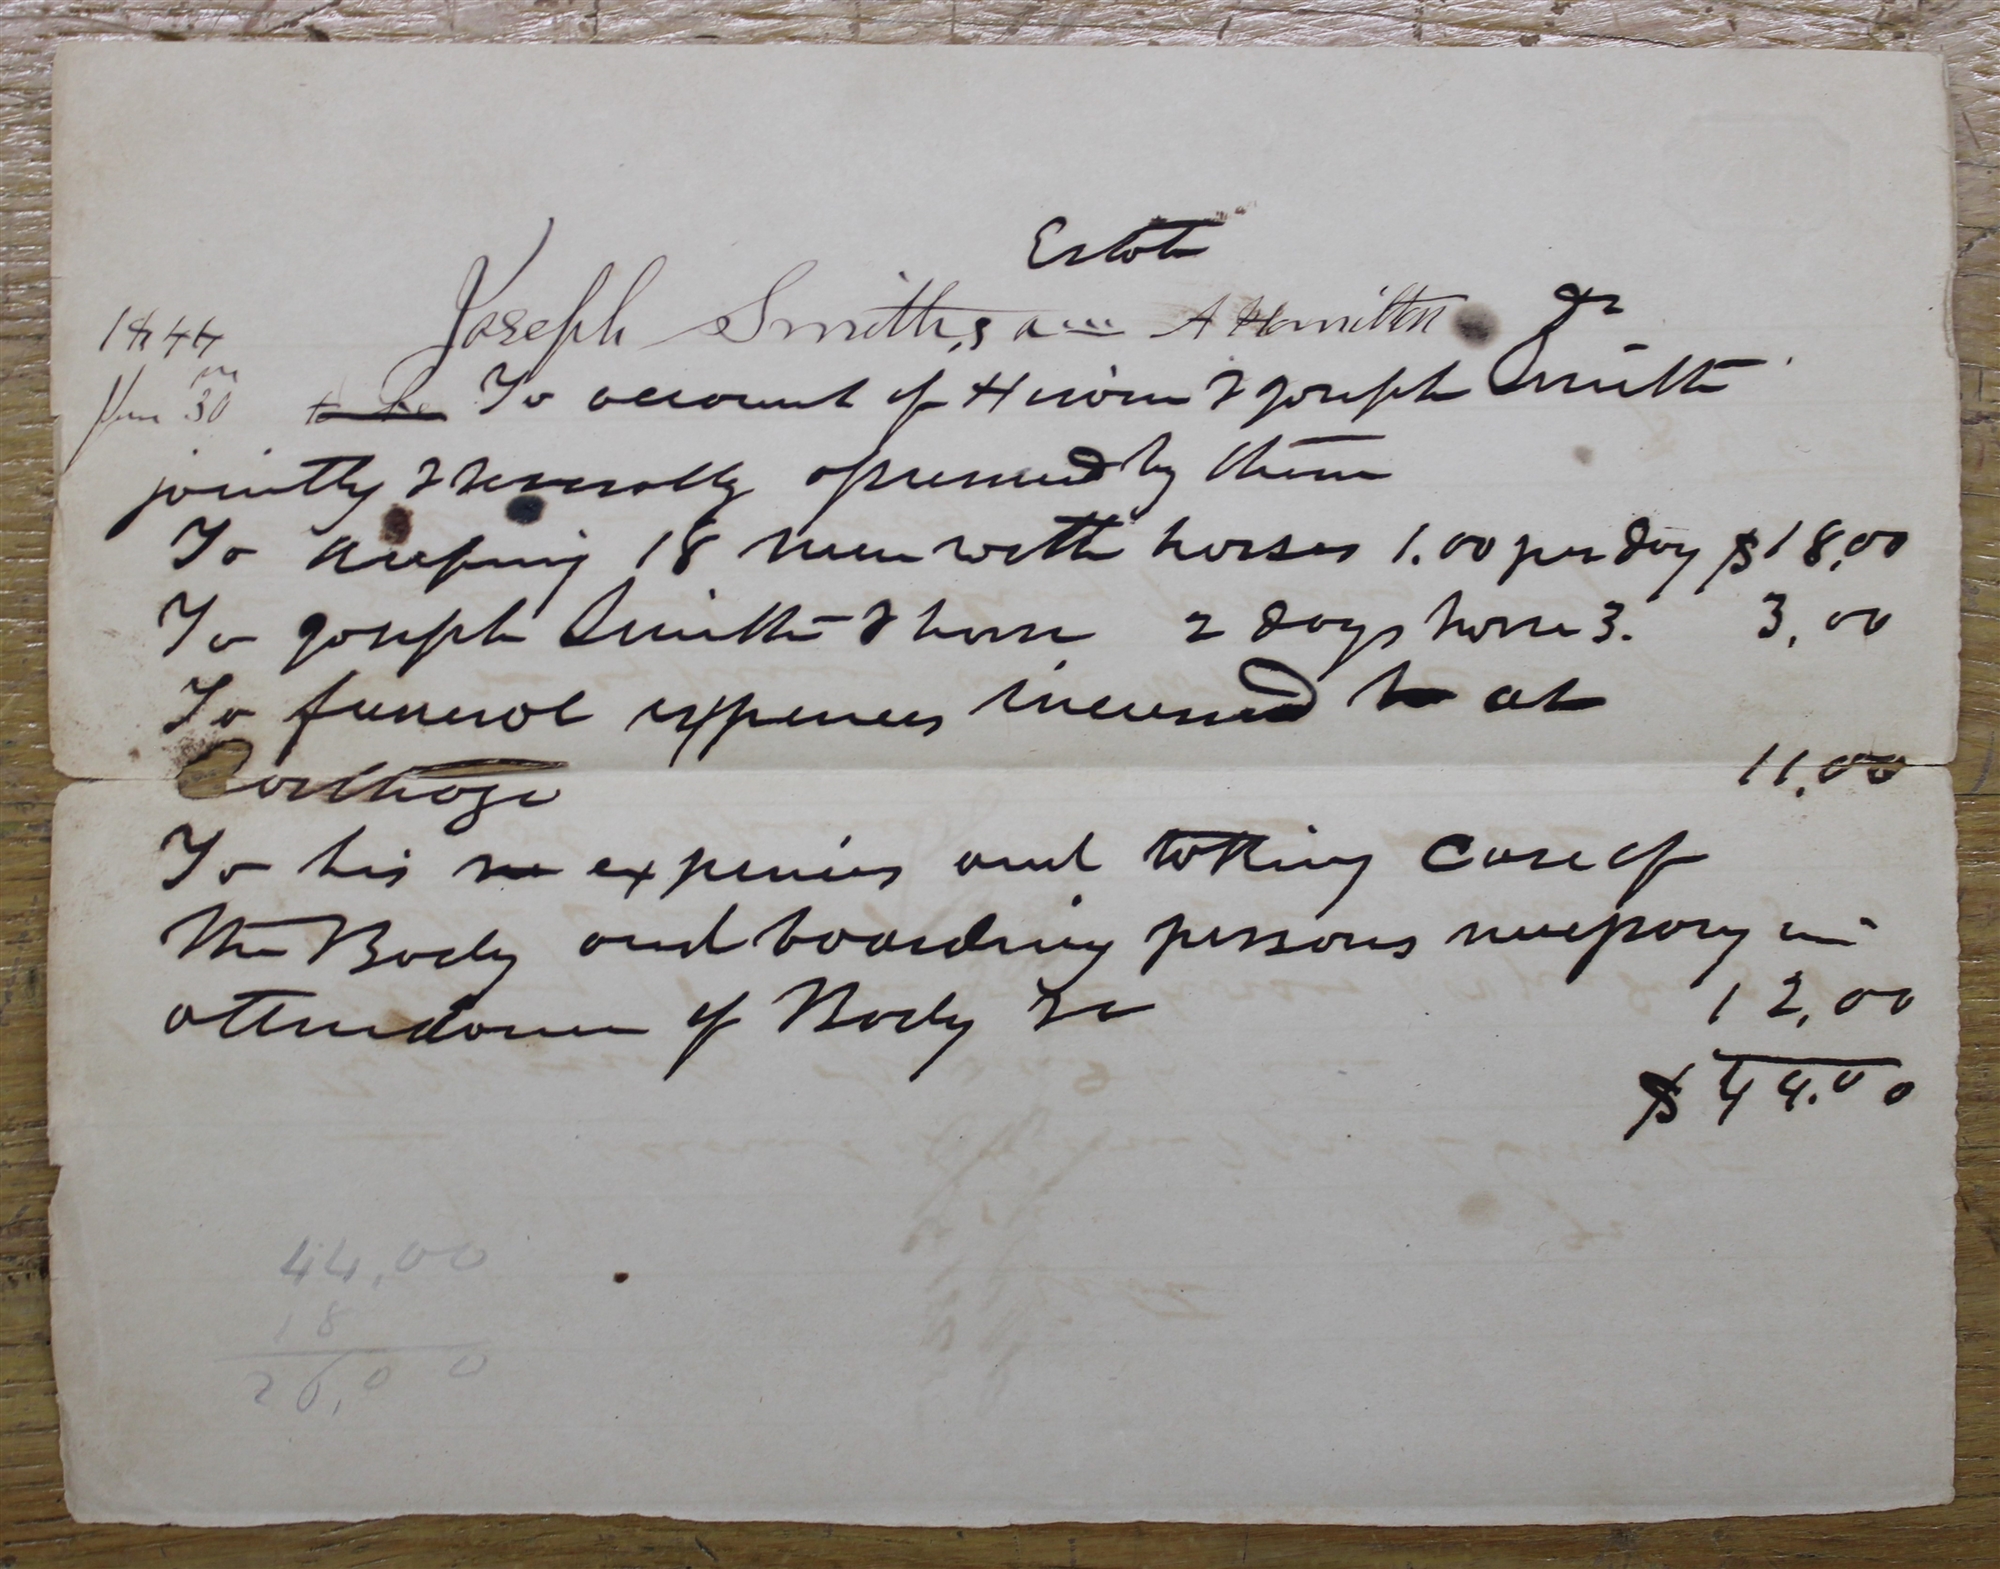 Estate
Joseph Smith,s A Hamilton Dr
1844
June 30 To account of Hirom & Joseph Smith
jointly & severally by them
To keeping 18 men with horses 1.00 per day $18,00
To Joseph Smith & horse 2 days horse 3. 3,00
To funeral expences incured at
Carthage 11,00
To his expenses and taking Care of
the Body and boarding persons necessary in
attendance of Body &c 12,00
$44.00
44,00
18
26,00